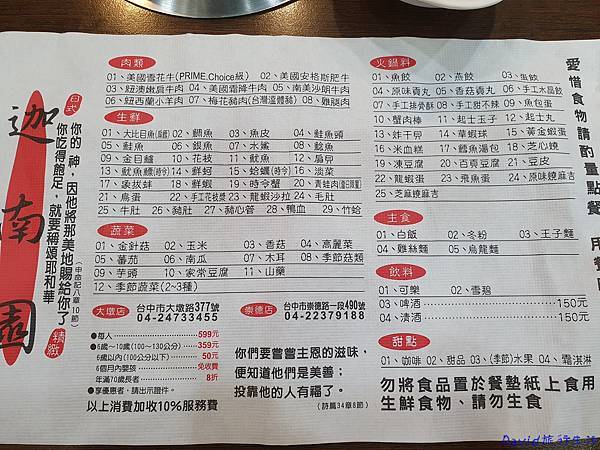 日式
迦南園
精緻
你的 神，因他將那美地賜給你了
你吃得飽足，就要稱頌耶和華
（申命記八章10節）
肉類
01、美國雪花牛(PRIME.Choice級)　02、美國安格斯肥牛
03、紐澳嫩肩牛肉　04、美國霜降牛肉　05、南美沙朗牛肉
06、紐西蘭小羊肉　07、梅花豬肉(台灣溫體豬)　08、雞腿肉
生鮮
01、大比目魚(扁鱈)　02、鯛魚　03、魚皮　04、鮭魚頭
05、鮭魚　06、銀魚　07、水鯊　08、鯰魚
09、金目鱸　10、花枝　11、魷魚　12、扇貝
13、魷魚鰾(時令)　14、鮮蚵　15、蛤蠣(時令)　16、淡菜
17、象拔蚌　18、鮮蝦　19、時令蟹　20、青蛙肉(當日限量)
21、鳥蛋　22、手工花枝漿　23、龍蝦沙拉　24、毛肚
25、牛肚　26、豬肚　27、豬心管　28、鴨血　29、竹蛤
蔬菜
01、金針菇　02、玉米　03、香菇　04、高麗菜
05、蕃茄　06、南瓜　07、木耳　08、季節菇類
09、芋頭　10、家常豆腐　11、山藥
12、季節蔬菜(2~3種)
大墩店 台中市大墩路377號
04-24733455
崇德店 台中市崇德路一段490號
04-22379188
●每人 599元
●6歲~10歲(100~130公分) 359元
6歲以內(100公分以下) 50元
6個月內嬰孩 免收費
年滿70歲長者 8折
●享優惠者，請出示證件。
以上消費加收10%服務費
你們要嘗嘗主恩的滋味，
便知道他們是美善；
投靠他的人有福了。
（詩篇34章8節）
火鍋料
01、魚餃　02、燕餃　03、蛋餃
04、原味貢丸　05、香菇貢丸　06、手工水晶餃
07、手工排骨酥　08、手工甜不辣　09、魚包蛋
10、蟹肉棒　11、起士玉子　12、起士丸
13、炸干貝　14、華蝦球　15、黃金蝦蛋
16、米血糕　17、鱈魚湯包　18、芝心燒
19、凍豆腐　20、百頁豆腐　21、豆皮
22、龍蝦蛋　23、飛魚蛋　24、原味燒麻吉
25、芝麻燒麻吉
主食
01、白飯　02、冬粉　03、王子麵
04、雞絲麵　05、烏龍麵
飲料
01、可樂　02、雪碧
03、啤酒 150元
04、清酒 150元
甜點
01、咖啡　02、甜品　03、(季節)水果　04、霜淇淋
勿將食品置於餐墊紙上食用
生鮮食物、請勿生食
愛惜食物請酌量點餐
用餐
David旅孬生活